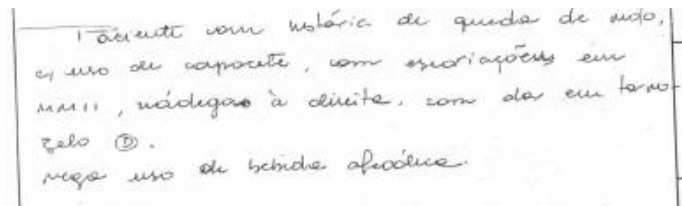 Paciente com história de queda de moto,
c/ uso de capacete, com escoriações em
MMII, nádegas à direita, com dor em torno-
zelo Ⓓ.
nega uso de bebida alcoólica.